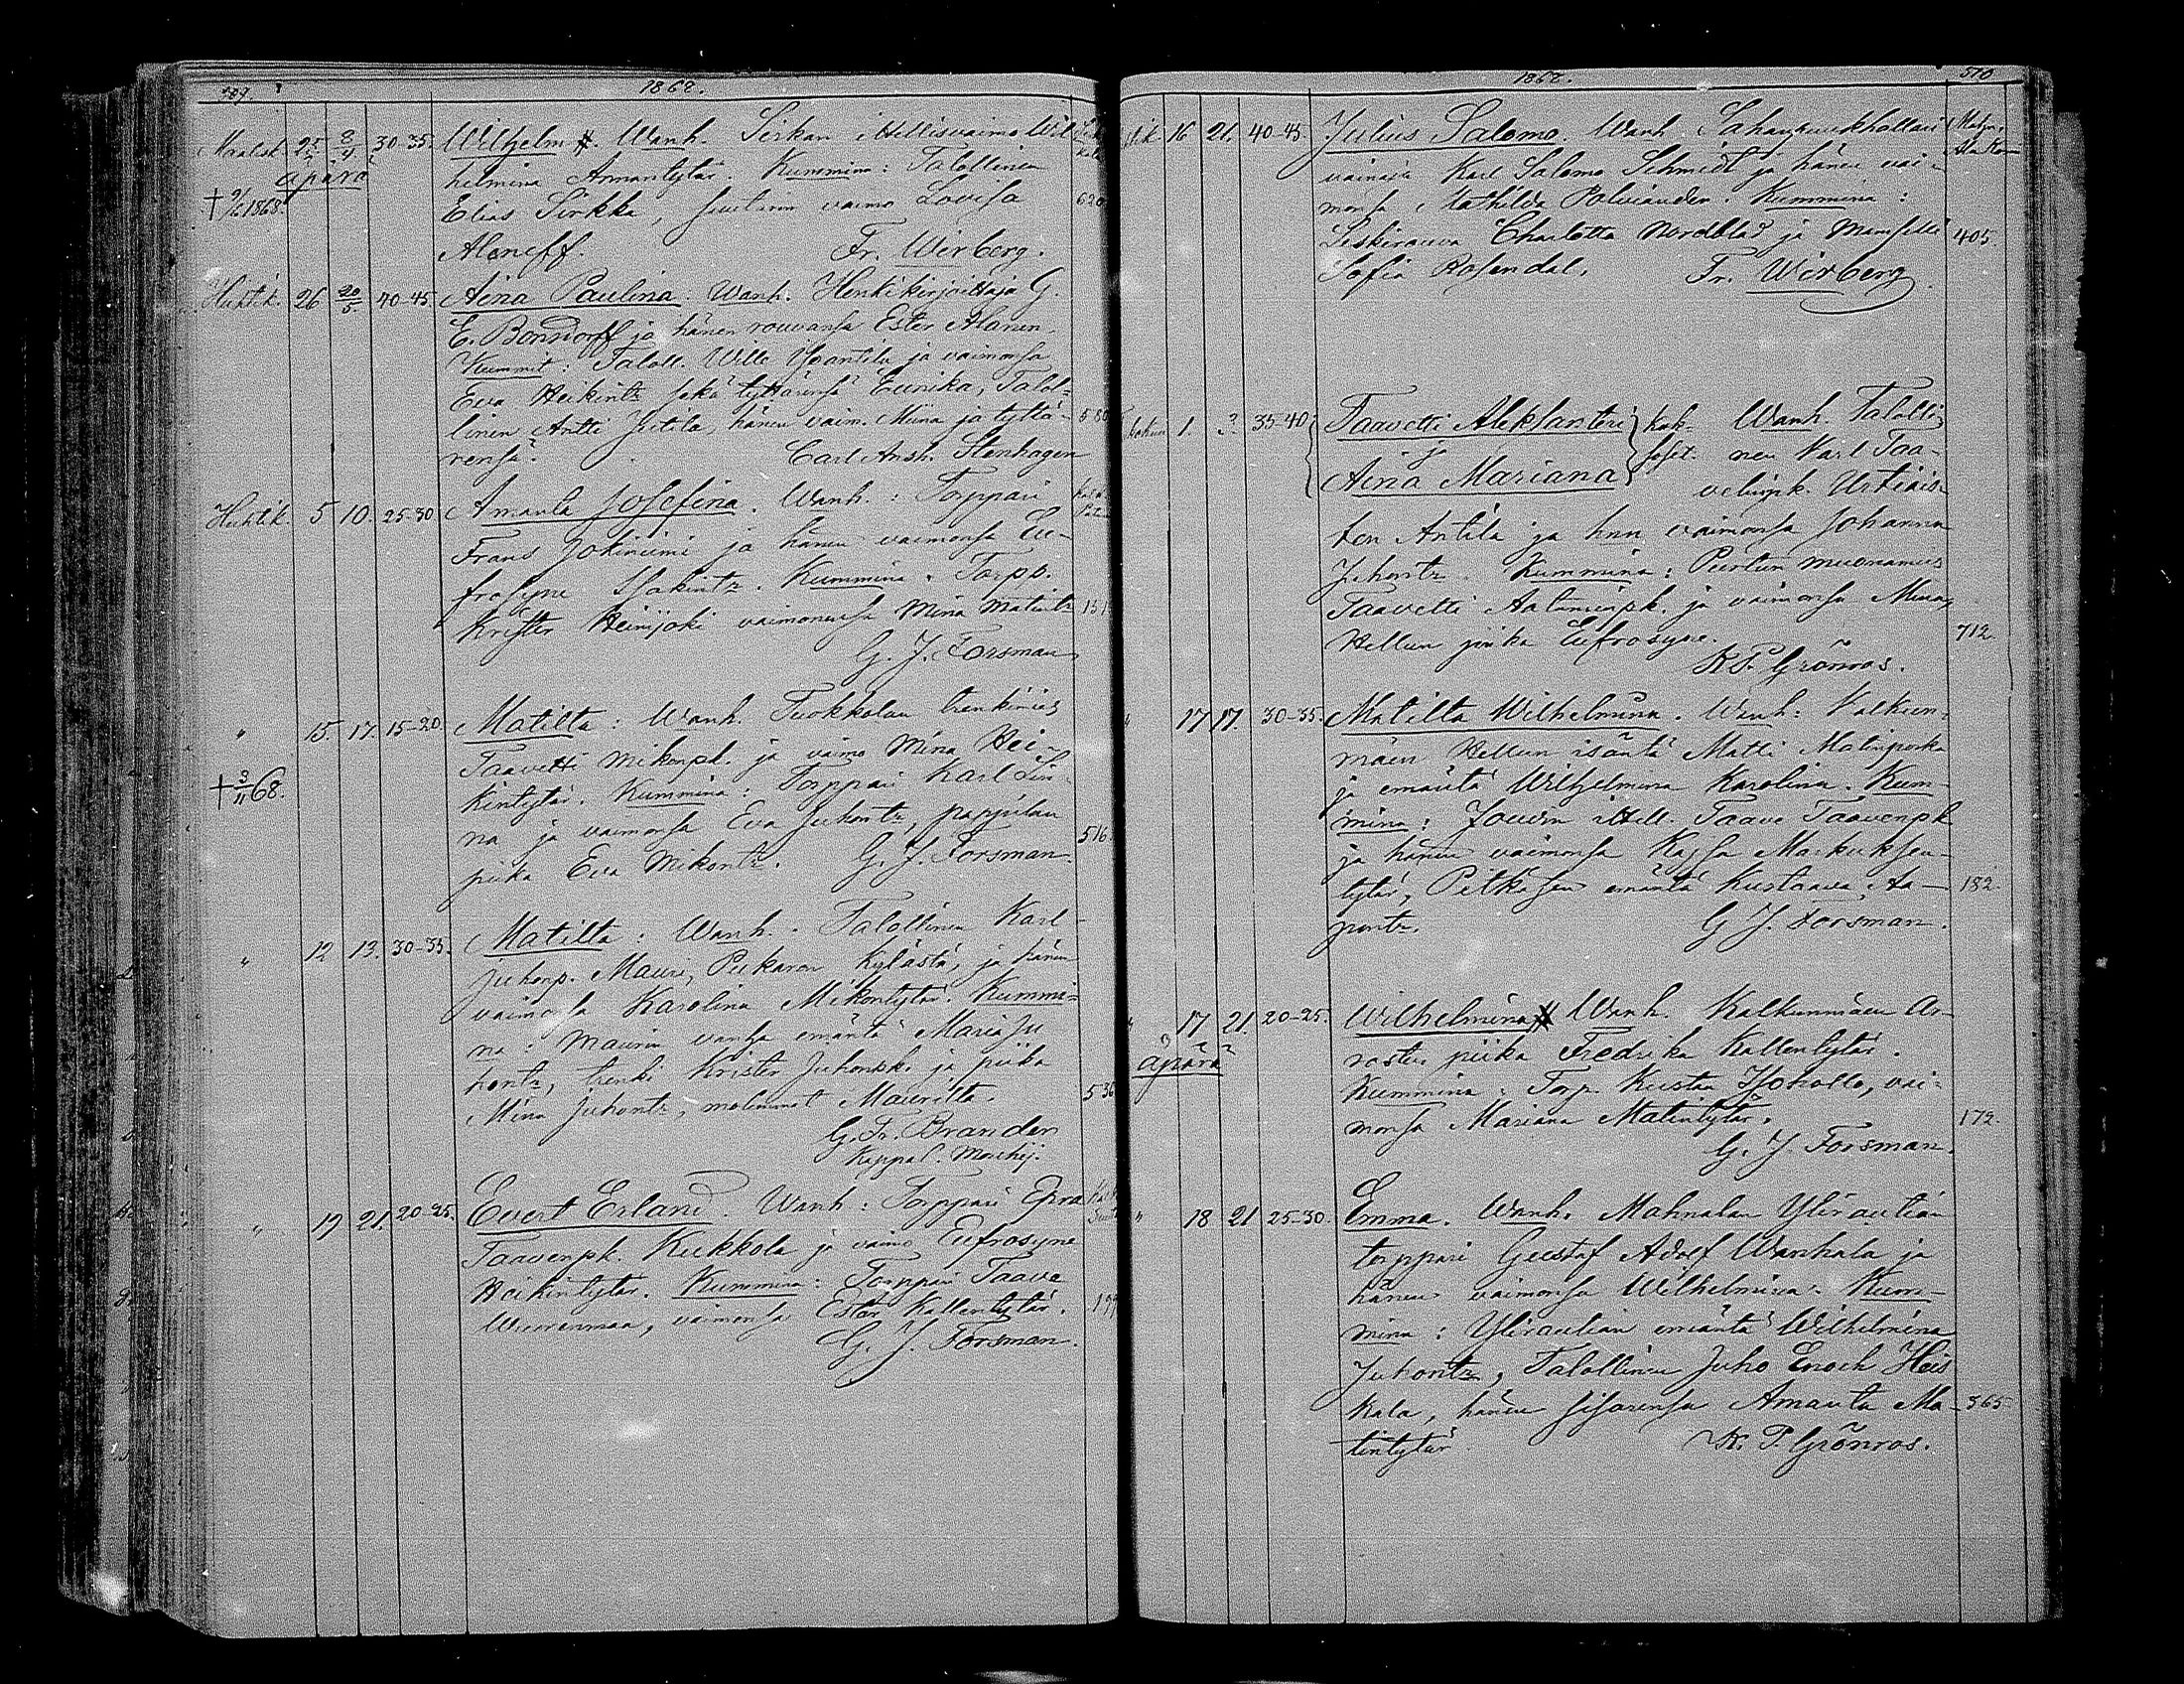 509. 1862.
Maalisk. 25 3/4 30-35. Wilhelm. Wanh. Sirkan itsellisvaimo Wil-
äpärä helmina Annantytär. Kummina: Talollinen
† 1868. Elias Sirkka, vaimo Lovisa 620
Aleneff. Fr. Wirberg.
Huhtik. 26 20/5. 40-45. Aina Paulina. Wanh. Henkikirjoittaja G.
E. Bonsdorff ja hänen rouvansa Ester Alanen
Kummit: Taloll. Wille ja vaimonsa
Eva Heikintr sekä tyttärensä Eunika, Talol-
linen Antti hänen vaim. Miina ja tyttä- 580
rensä. Carl Stenhagen
Huhtik. 5 10. 25-30 Amanta Josefina. Wanh.: Torppari
Frans Jokiniemi ja hänen vaimonsa Eu-
frosyne Isakintr. Kummina. Torpp.
Krister Heinijoki vaimonensa Mina Matintr 151
G. J. Forsman
" 15. 17. 15-20. Matilta: Wanh. Tuokkolan trenkimies
Taavetti Mikonpk. ja vaimo Mina Hei-
† 3/11 68. kintytär. Kummina: Torppari Karl Lin-
na ja vaimonsa Eva Juhontr, 516.
piika Eva Mikontr. G. J. Forsman.
" 12 13. 30-35. Matilta: Wanh. Talollinen Karl
Juhonp. Mauri, Pukaran kylästä, ja hänen
vaimonsa Karolina Mikontytär. Kummi-
na: Maurin vanha emäntä Maria Ju
hontr, trenki Krister Juhonpk. ja piika
Mina Juhontr, molemmat Maurilta. 536
G. Fr. Brander
Kappal.
" 19 21. 20-25. Evert Erland. Wanh: Torppari Esra
Taavenpk. Kukkola ja vaimo Eufrosyne
Heikintytär. Kummina: Torppari Taave
vaimonsa Ester Kallentytär.
G. J. Forsman.
1862. 510
16 21. 40-45. Julius Salomo. Wanh.
vainaja Karl Salomo Schmidt ja hänen vai-
monsa Mathilda Polviander. Kummina:
Leskirouva Charlotta Nordblad ja Mamselli 405.
Sofia Rosendal. Fr. Wirberg
1. 3. 35-40 Taavetti Aleksanteri kak- Wanh. Talolli
ja soset. nen Karl Taa-
Aina Mariana
ten Antila ja hnn vaimonsa Johanna
Juhontr. Kummina: muonamies
Taavetti ja vaimonsa Mina,
Hellun piika Eufrosyne. 712.
K. P. Grönroos.
" 17 17. 30-35. Matilta Wilhelmina. Wanh: Kalkun-
mäen Hellun isäntä Matti Matinpoika
ja emäntä Wilhelmina Karolina. Kum-
mina: Jouvin itsell. Taave Taavenpk.
ja hänen vaimonsa Kajsa Markuksen-
tytär, Pitkäsen emäntä Kustaava Aa- 182.
pontr. G. J. Forsman.
" 17 21. 20-25. Wilhelmina Wanh. Kalkunmäen
äpärä piika Fredrika Kallentytär.
Kummina: Torp. Kustaa Isoholla, vai-
monsa Mariana Matintytär. 172.
G. J. Forsman.
" 18 21 25-30. Emma. Wanh. Mahnalan Yliraution
torppari Gustaf Adolf Wanhala ja
hänen vaimonsa Wilhelmina. Kum-
mina: Yliraution emäntä Wilhelmina
Juhontr, Talollinen Juho Enoch Heis
kala, hänen sisarensa Amanta Ma- 365
tintytär K. P. Grönroos.